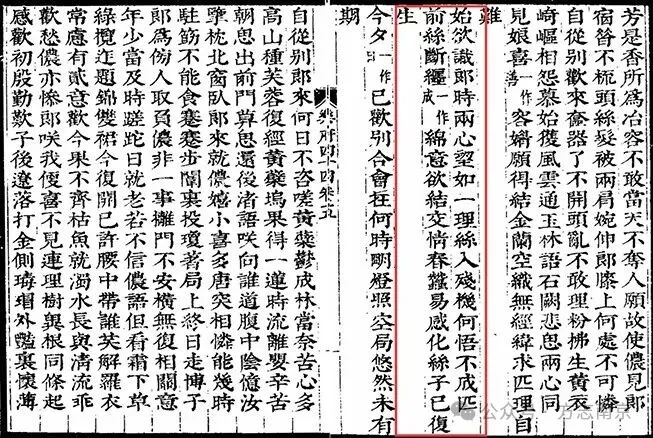 芳是香所爲冶容不敢當天不奪人願故使儂見郎
宿昔不梳頭絲髮被兩肩婉伸郎膝上何處不可憐
自從別歡來奩器了不開頭亂不敢理粉拂生黃衣
崎嶇相怨慕始獲風雲通玉林語石闕悲思兩心同
見娘喜一作善容媚願得結金蘭空織無經緯求匹理自
難
始欲識郎時兩心望如一理絲入殘機何悟不成匹
前絲斷纏一作成綿意欲結交情春蠶易感化絲子已復
生
今夕一作日已歡別合會在何時明燈照空局悠然未有
期
樂府四十四卷十五
自從別郎來何日不咨嗟黃蘗鬱成林當奈苦心多
高山種芙蓉復經黃蘗塢果得一蓮時流離嬰辛苦
朝思出前門暮思還後渚語笑向誰道腹中陰憶汝
擥枕北窗臥郎來就儂嬉小喜多唐突相憐能幾時
駐筯不能食蹇蹇步闈裏投瓊著局上終日走博子
郎爲傍人取負儂非一事攡門不安橫無復相關意
年少當及時蹉跎日就老若不信儂語但看霜下草
綠攬迮題錦雙裙今復開已許腰中帶誰共解羅衣
常慮有貳意歡今果不齊枯魚就濁水長與清流乖
歡愁儂亦慘郎笑我便喜不見連理樹異根同條起
感歡初殷勤歎子後遼落打金側瑇瑁外艷裏懷薄
公众号 · 方志南京